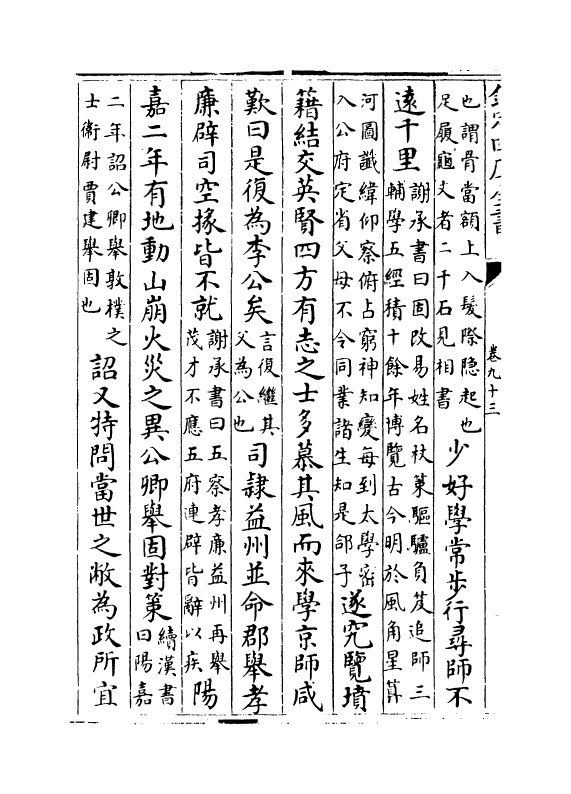 欽定四庫全書
卷九十三
也謂骨當額上入髮際隱起也
足履龜文者二千石見相書
少好學常步行尋師不
遠千里
謝承書曰固改易姓名杖策驅驢負笈追師三
輔學五經積十餘年博覽古今明於風角星算
河圖讖緯仰察俯占窮神知變每到太學宻
入公府定省父母不令同業諸生知是郃子
遂究覽墳
籍結交英賢四方有志之士多慕其風而來學京師咸
歎曰是復為李公矣
言復繼其
父為公也
司隷益州並命郡舉孝
廉辟司空掾皆不就
謝承書曰五察孝廉益州再舉
茂才不應五府連辟皆辭以疾
陽
嘉二年有地動山崩火災之異公卿舉固對策
續漢書
曰陽嘉
二年詔公卿舉敦樸之
士衛尉賈建舉固也
詔又特問當世之敝為政所宜